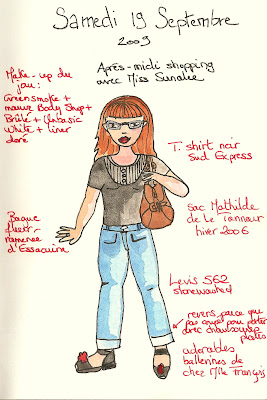 Samedi 19 Septembre
2009
Après-midi shopping
avec Miss Sunalee
Make-up du
jour:
Greensmoke +
mauve Body Shop +
Brûlé + Fantastic
White + liner
doré
T. shirt noir
Sud Express
Sac Mathilde
de Le Tanneur
hiver 2006
Bague
fleur
ramenée
d'Essaouira
Levis 562
stonewashed
revers parce que
pas coupé pour porter
avec chaussures
plates
adorables
ballerines de
chez Mlle Françis